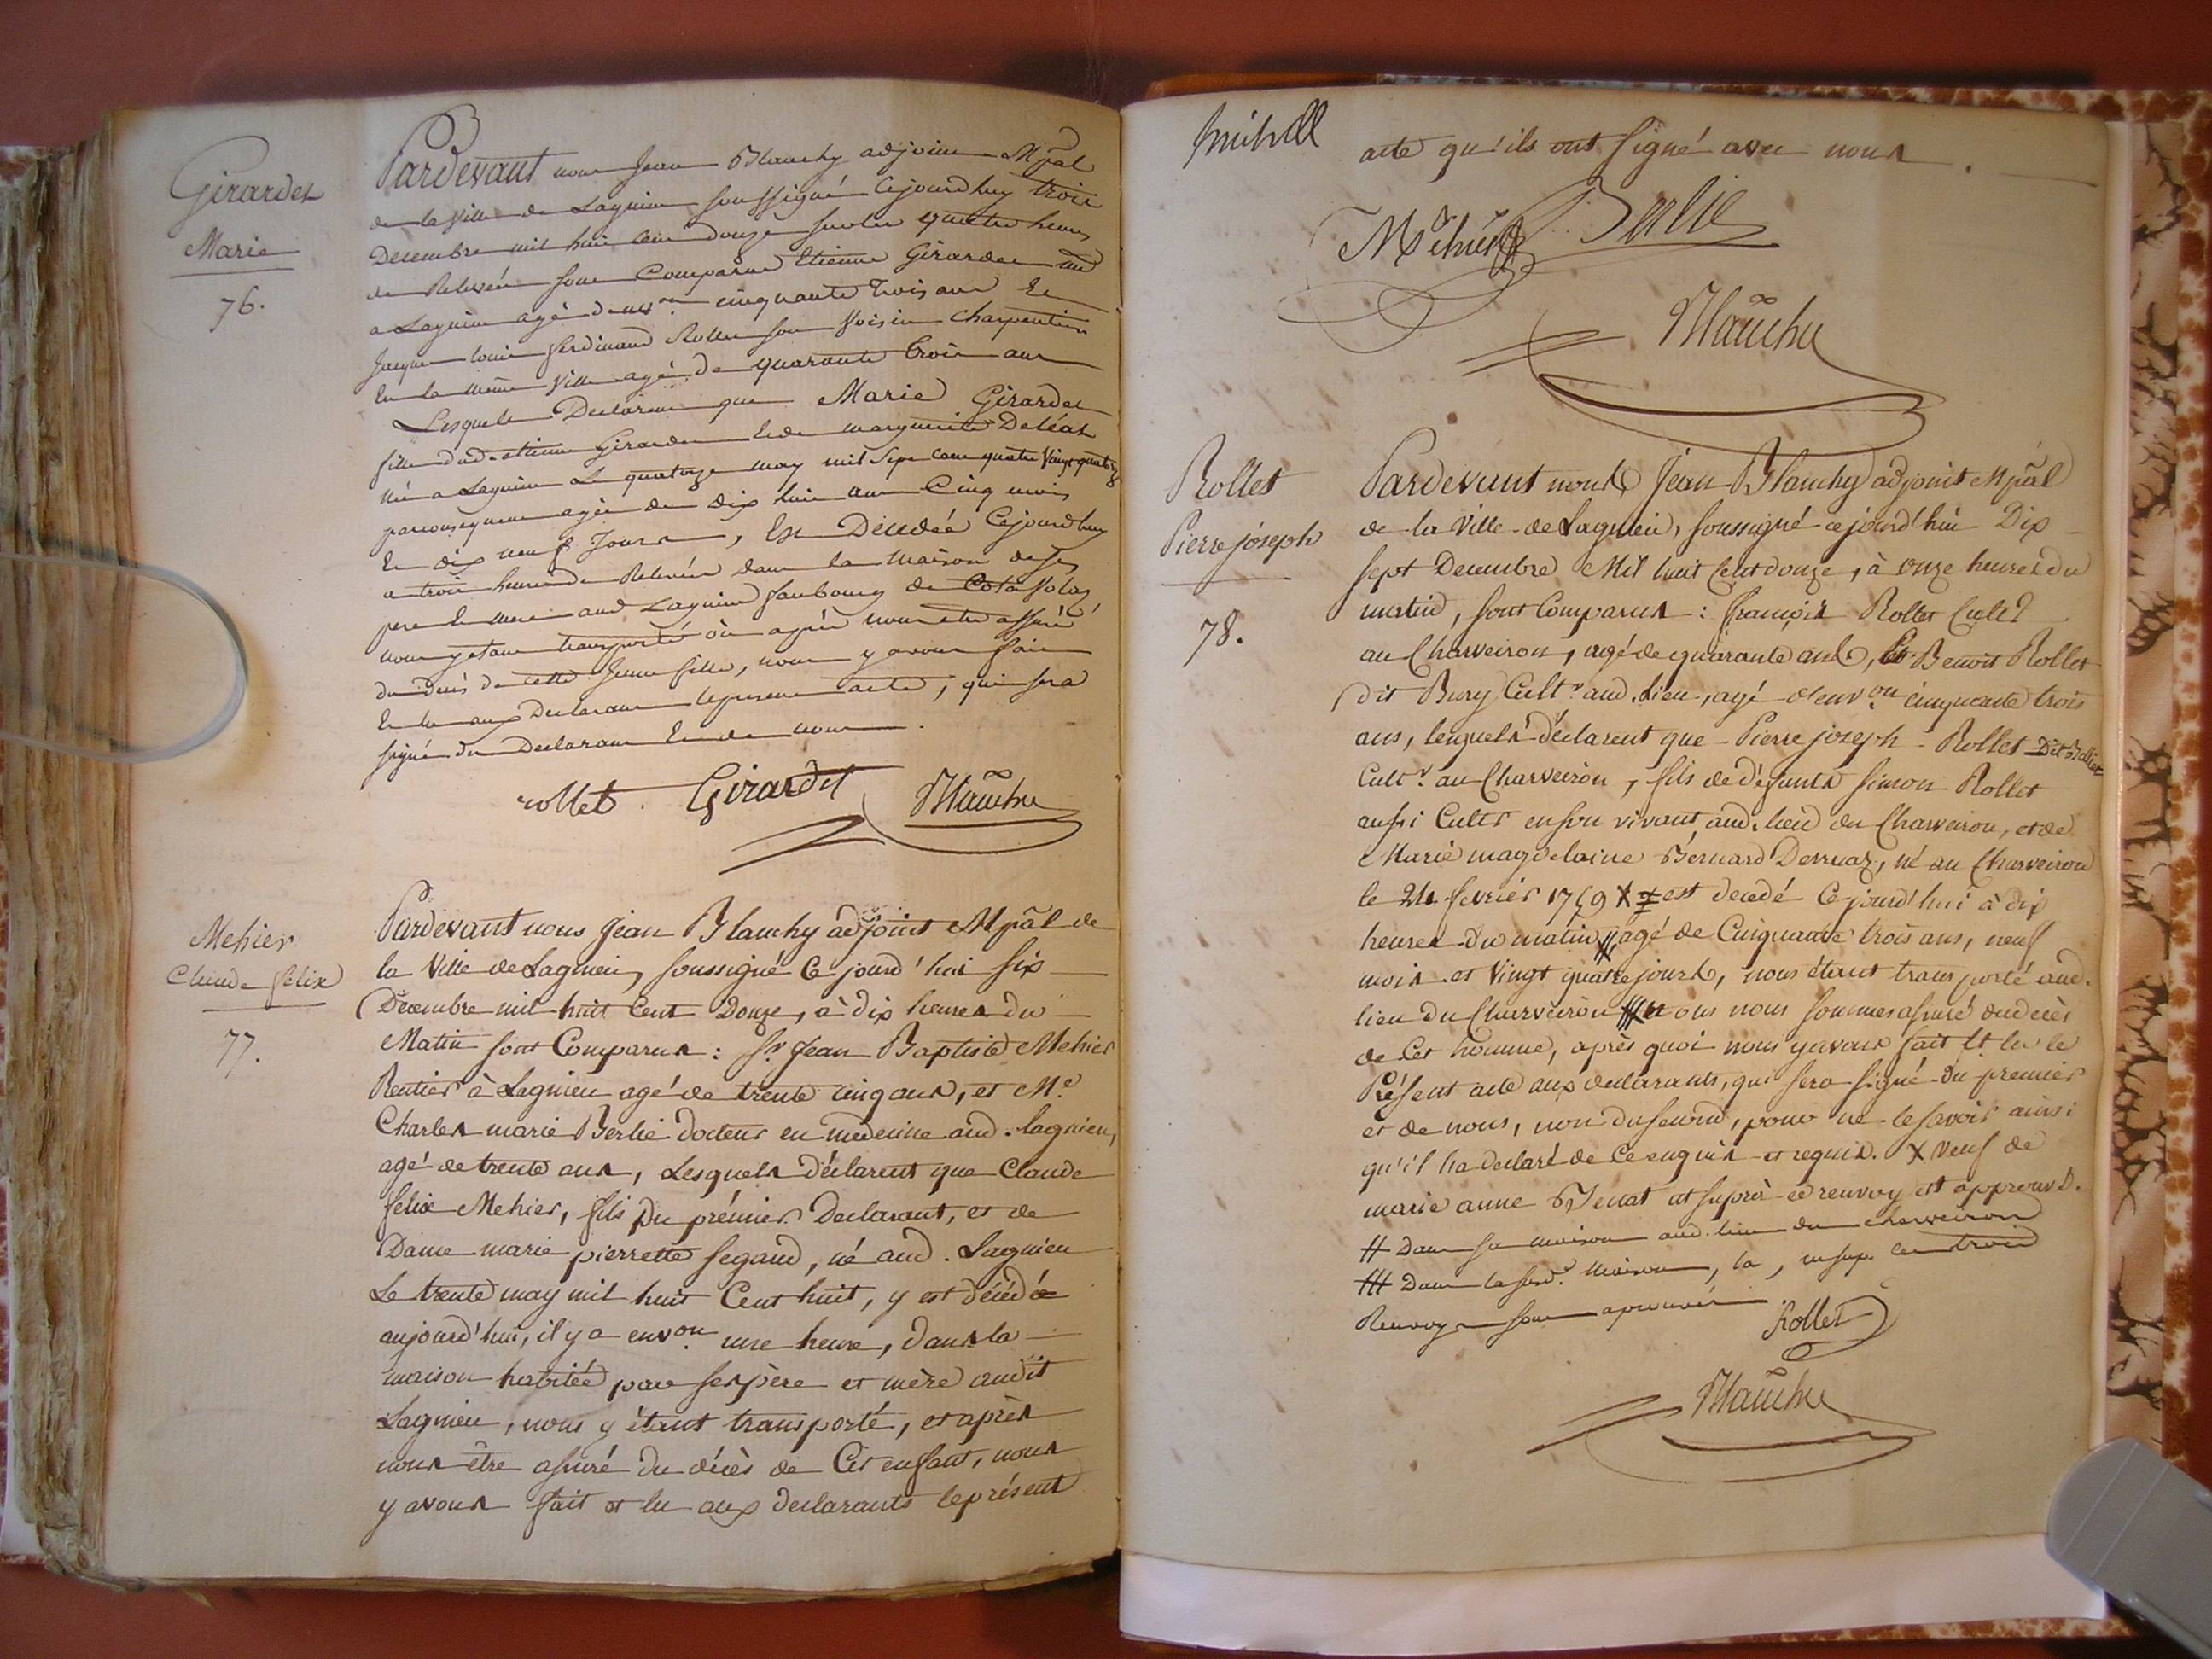 Girardet
Marie
76.
Pardevant nous Jean Blanchy adjoint Mpãl
de la ville de Lagnieu soussigné Cejourdhuy trois
Decembre mil huit cent douze sur les quatre heures
de Relevée sont Comparus Etienne Girardet
a Lagnieu agé d'env.on cinquante trois ans Et
Jacques louis ferdinand Rollet son Voisin Charpentier
En la meme Ville agé de quarante trois ans
Lesquels Declarent que Marie Girardet
fille dud. etienne Girardet Et de marguerite Deléas
née a Lagnieu Le quatorze may mil Sept cent quatre Vingt quatorze
parconsequent agée de dix huit ans Cinq mois
Et dix neuf Jours, Est Decedée Cejourdhuy
a trois heures de Relevée dans la Maison de ses
pere Et mere aud Lagnieu faubourg de
nous y etant transporté où après nous etre assuré
du decès de cette Jeune fille, nous y avons fait
Et lu aux Declarans le present acte, qui sera
signé des Declarans Et de nous.
rollet Girardet Blanchy
Mehier
Claude felix
77.
Pardevant nous Jean Blanchy adjoint Mpãl de
la Ville de Lagnieu, soussigné Ce jourd'hui six
Decembre mil huit Cent Douze, à dix heures du
Matin sont Comparus : Sr. Jean Baptiste Mehier
Rentier à Lagnieu agé de trente cinq ans, et Me.
Charles marie Berlie docteur en medecine aud. lagnieu,
agé de trente ans, Lesquels déclarent que Claude
felix Mehier, fils Du prémier Declarant, et de
Dame marie pierrette segaud, né aud. Lagnieu
Le trente may mil huit Cent huit, y est décédé
aujourd'hui, il y a env.on une heure, dans la
maison habitée par ses père et mère audit
Lagnieu, nous y étant transporté, et après
nous être assuré du décès de Cet enfant, nous
y avons fait et lu aux declarants le présent
acte qu'ils ont signé avec nous.
Méhier Berlie
Blanchy
Rollet
Pierre joseph
78.
Pardevant nous Jean Blanchy adjoint Mpãl
de la Ville de Lagnieu, soussigné ce jourd'hui Dix
sept Decembre Mil huit Cent douze, à onze heures du
matin, sont Comparus : françois Rollet Cult.r
au Charveiron, agé de quarante ans, Et Benoit Rollet
dit Bury Cult.r aud. Lieu, agé d'env.on cinquante trois
ans, lesquels déclarent que Pierre joseph Rollet
Cult.r au Charveiron, fils de défunts simon Rollet
aussi Cultr en son vivant aud. lieu du Charveiron, et de
Marie magdelaine Bernard Derruaz, né au Charveiron
le 24 fevrier 1759 X est decedé Ce jourd'hui à dix
heures du matin ++ agé de Cinquante trois ans, neuf
mois et Vingt quatre jours, nous étant transporté aud.
lieu du Charveiron +++ nous nous sommes assuré du decès
de Cet homme, après quoi nous y avons fait Et lu le
Présent acte aux declarants, qui sera signé du premier
et de nous, non du second, pour ne le savoir ainsi
qu'il l'a declaré de Ce enquis et requis. X Veuf de
marie anne Benat ut suprà ce renvoy est approuvé.
++ Dans sa maison aud. lieu du charveiron
+++ Dans la susd.e Maison, la, les trois
Renvoys sont aprouvés
Rollet
Blanchy